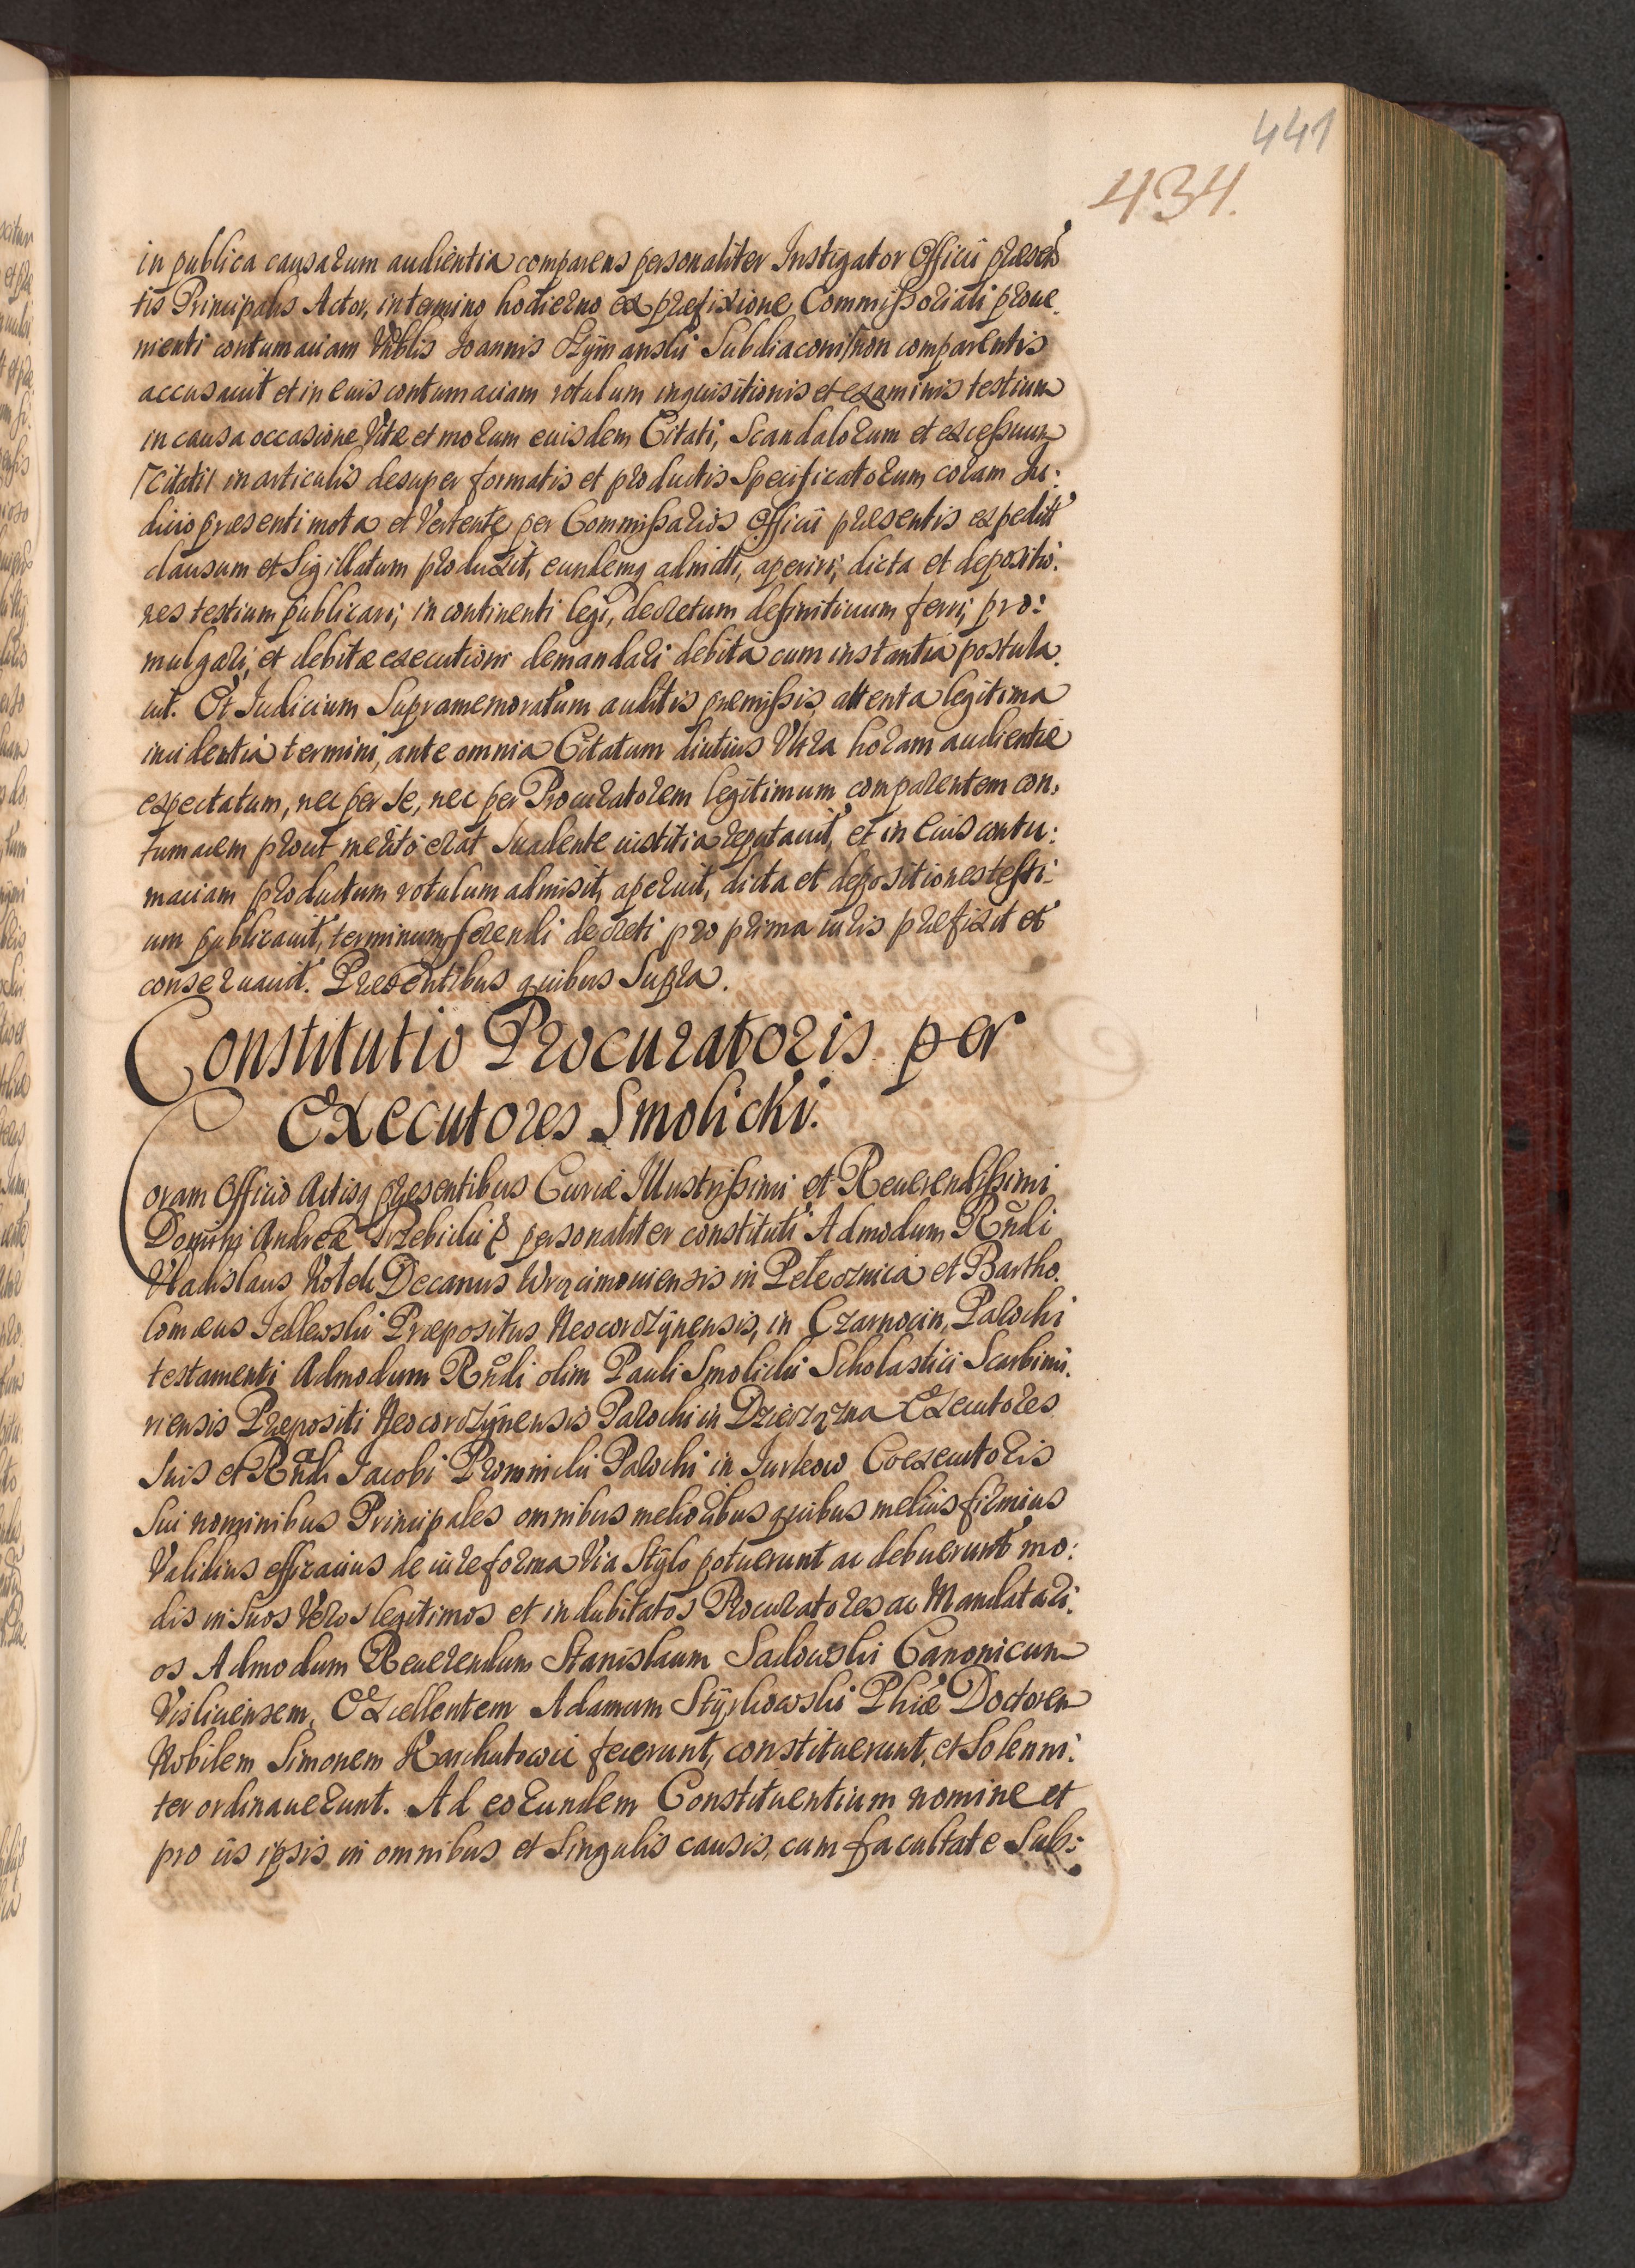 441
434.
in publica causarum audientia comparens personaliter Instigator Officii præsen
tis Principalis Actor, in termino hodierno ex præfixione Commissoriali prove
nienti contumaciam Vnblis Joannis Szÿmanski Subdiaconi non comparentis
accusavit et in euis contumaciam rotulum inquisitionis et examinis testium
in causa occasione Vitæ et morum euisdem Citati, Scandalorum et excessuum
/Citati/ in articulis desuper formatis et productis Specificatorum coram Ju:
dicio præsenti mota et Vertente per Commissarios Officii præsentis expedit
clausum et Sigillatum produxit, eundemq admitti, aperiri, dicta et depositio:
nes testium publicari, in continenti legi, decretum definitiuum ferri, pro:
mulgari, et debitæ executioni demandari debita cum instantia postula
uit. Et Judicium Supramemoratum auditis præmissis, attenta legitima
incidentia termini, ante omnia Citatum diutius Vltra horam audientiæ
expectatum, nec per se, nec per Procuratorem legitimum comparentem con,
tumacem prout merito erat Suadente iustitia reputauit, et in euis contu:
maciam productum rotulum admisit, aperuit, dicta et depositiones testi:
um publicauit, terminum ferendi decreti pro prima iuris præfixit et
conseruauit. Præsentibus quibus Supra.
Constitutio Procuratoris per
Executores Smolickii.
Coram Officio Actisq præsentibus Curiæ Illustrissimi et Reuerendissimi
Domini Andreæ Trzebicki & personaliter constituti Admodum Rñdi
Vladislaus Decanus Wrocimouiensis in Pełecznica et Bartho
lomæus Jelleoski Præpositus Neocorczÿnensis, in Czarnocin, Parochi
testamenti Admodum Rñdi olim Pauli Smolicki Scholastici Scarbimi.
riensis Præpositi Neocorczÿnensis Parochi in Dzierązna Executores
Suis et Rñdi Jacobi Promnicki Parochi in Jurkow Coexecutoris
Sui nominibus Principales omnibus melioribus quibus melius firmius
Validius efficacius de iure forma Via Stÿlo potuerunt ac debuerunt mo:
dis in Suos Veros legitimos et indubitatos Procuratores ac Mandatari:
os Admodum Reuerendum Stanislaum Sadowski Canonicum
Visliciensem, Excellentem Adamum Stÿrkowski Phiæ Doctorem
Nobilem Simonem fecerunt, constituerunt, et Solenni:
ter ordinauerunt. Ad eorundem Constituentium nomine et
pro iis ipsis in omnibus et Singulis causis, cum facultate Sub: